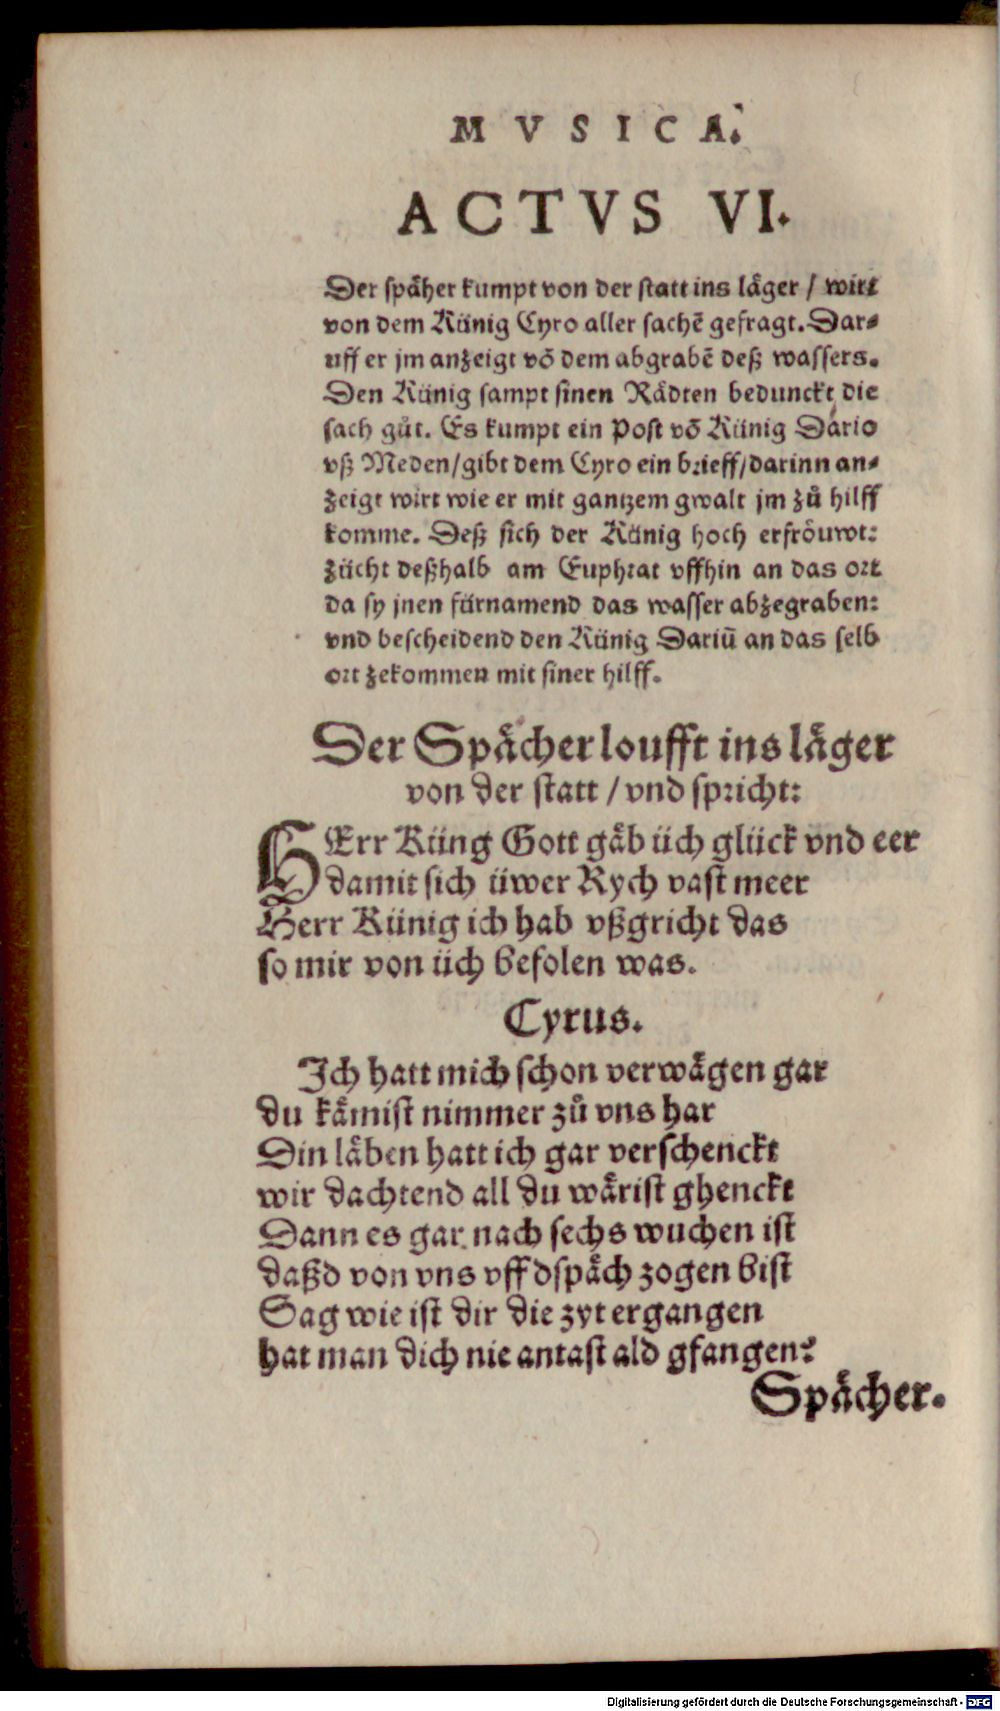 MVSICA.
ACTVS VI.
Der späher kumpt von der statt ins läger / wirt
von dem Künig Cyro aller sachē gefragt. Dar⸗
uff er jm anzeigt vō dem abgrabē deß wassers.
Den Künig sampt sinen Rädten bedunckt die
sach gůt. Es kumpt ein Post vō Künig Dario
vß Meden/gibt dem Cyro ein brieff/darinn an⸗
zeigt wirt wie er mit gantzem gwalt jm zů hilff
komme. Deß sich der Künig hoch erfröuwt:
zücht deßhalb am Euphrat vffhin an das ort
da sy jnen fürnamend das wasser abzegraben:
vnd bescheidend den Künig Dariū an das selb
ort zekommen mit siner hilff.
Der Spächer loufft ins läger
von der statt / vnd spricht:
HErr Küng Gott gäb üch glück vnd eer
damit sich üwer Rych vast meer
Herr Künig ich hab vßgricht das
so mir von üch befolen was.
Cyrus.
Ich hatt mich schon verwägen gar
du kämist nimmer zů vns har
Din läben hatt ich gar verschenckt
wir dachtend all du wärist ghenckt
Dann es gar nach sechs wuchen ist
daßd von vns vff dspäch zogen bist
Sag wie ist dir die zyt ergangen
hat man dich nie antast ald gfangen?
Spächer.
Digitalisierung gefördert durch die Deutsche Forschungsgemeinschaft - DFG